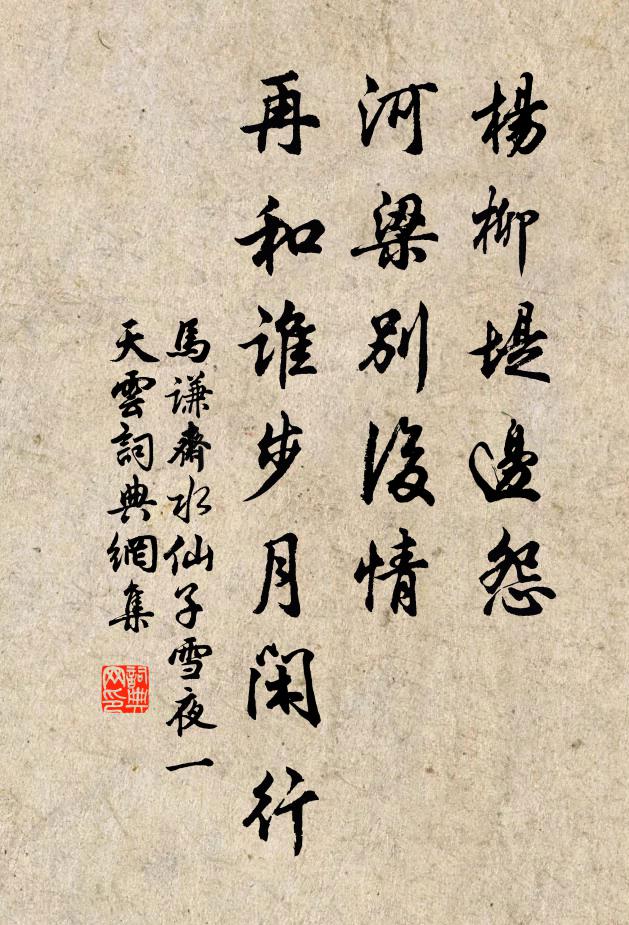 楊柳堤邊怨
河梁別後情
再和誰步月閑行
馬谦齋水仙子雪夜一
天雲詞典網集
詞典
网印